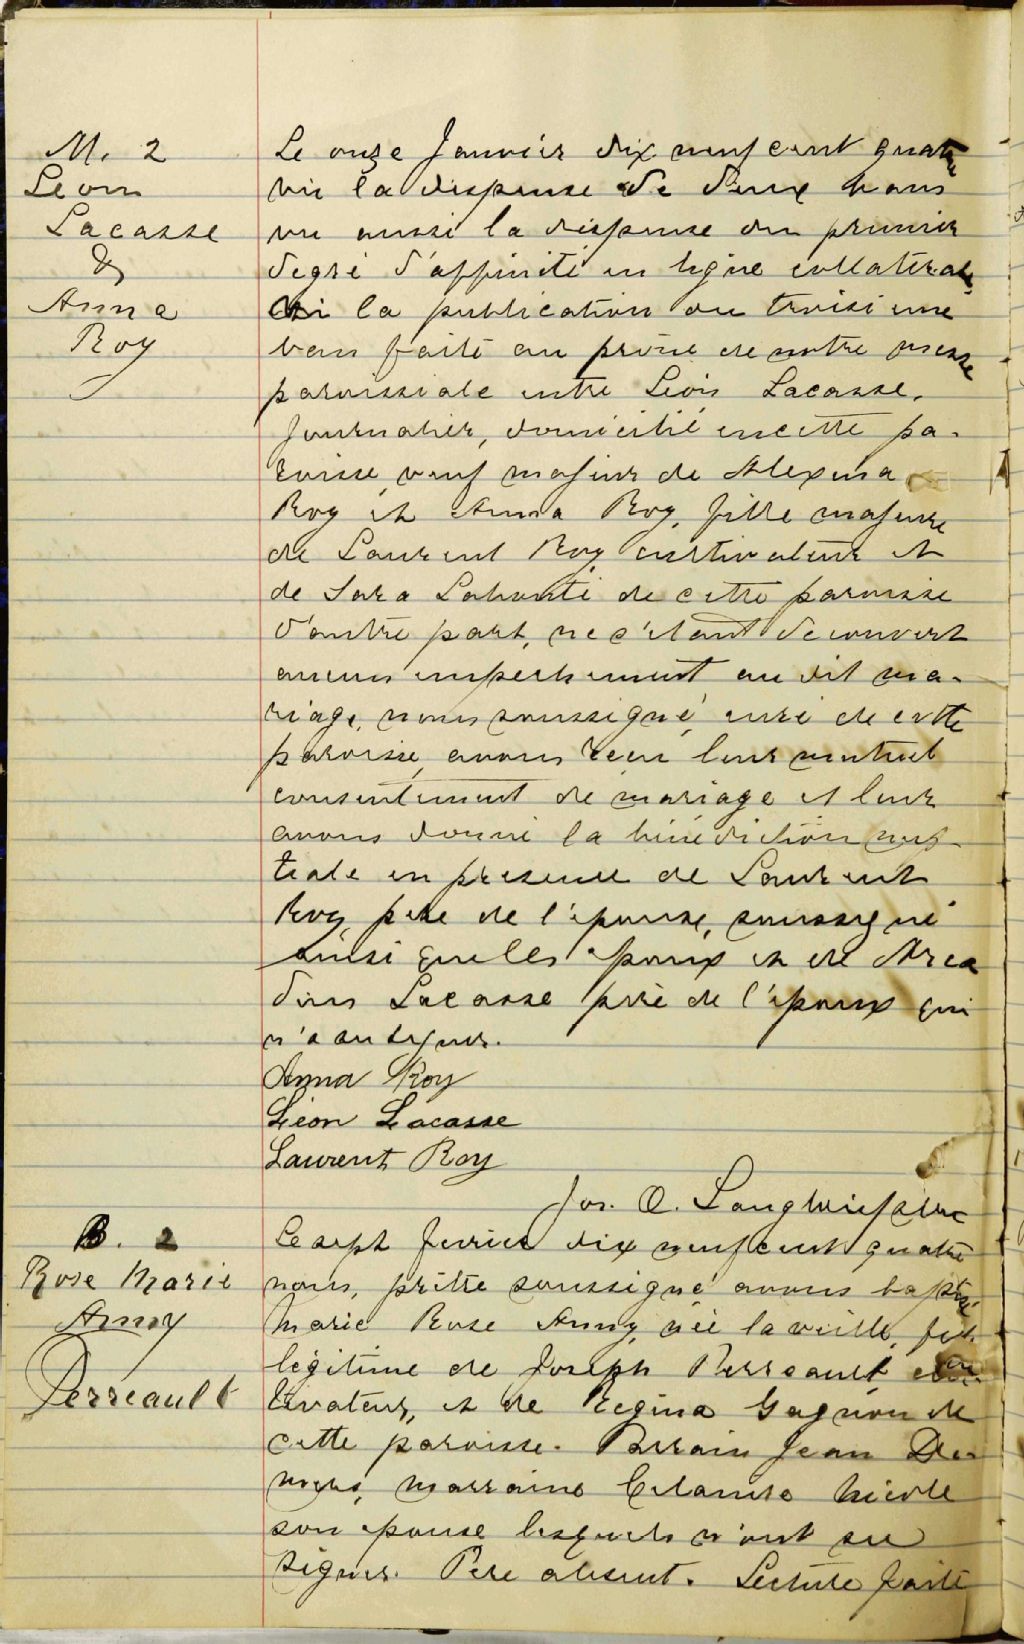 M. 2
Leon
Lacasse
&
Anna
Roy
Le onze Janvier dix neuf cent quatre
vu la dispense de deux bans
vu aussi la dispense du premier
degré d'affinité en ligne collatérale
la publication du troisieme
ban faite au prône de notre messe
paroissiale entre Léon Lacasse,
Journalier, domicilié en cette pa-
roisse, veuf majeur de Alexina
Roy et Anna Roy, fille majeure
de Laurent Roy cultivateur et
de Sara Labonté de cette paroisse
d'autre part, ne s'étant découvert
aucun empêchement au dit ma-
riage, nous soussigné, curé de cette
paroisse, avons reçu leur mutuel
consentement de mariage et leur
avons donné la bénédiction nup-
tiale en présence de Laurent
Roy, père de l'épouse, soussigné
ainsi que les époux et de
Lacasse père de l'époux qui
n'a su signer.
Anna Roy
Léon Lacasse
Laurent Roy
Jos. O.
B. 2
Rose Marie
Anny
Perreault
Le sept fevrier dix neuf cent quatre
nous, prêtre soussigné avons baptisé
Marie Rose Anny, née la veille, fille
légitime de Joseph Perreault, cul-
tivateur, et de Regina Gagnon de
cette paroisse. Parrain Jean De-
mers, marraine Nicole
son épouse lesquels n'ont su
signer. Père absent. Lecture faite